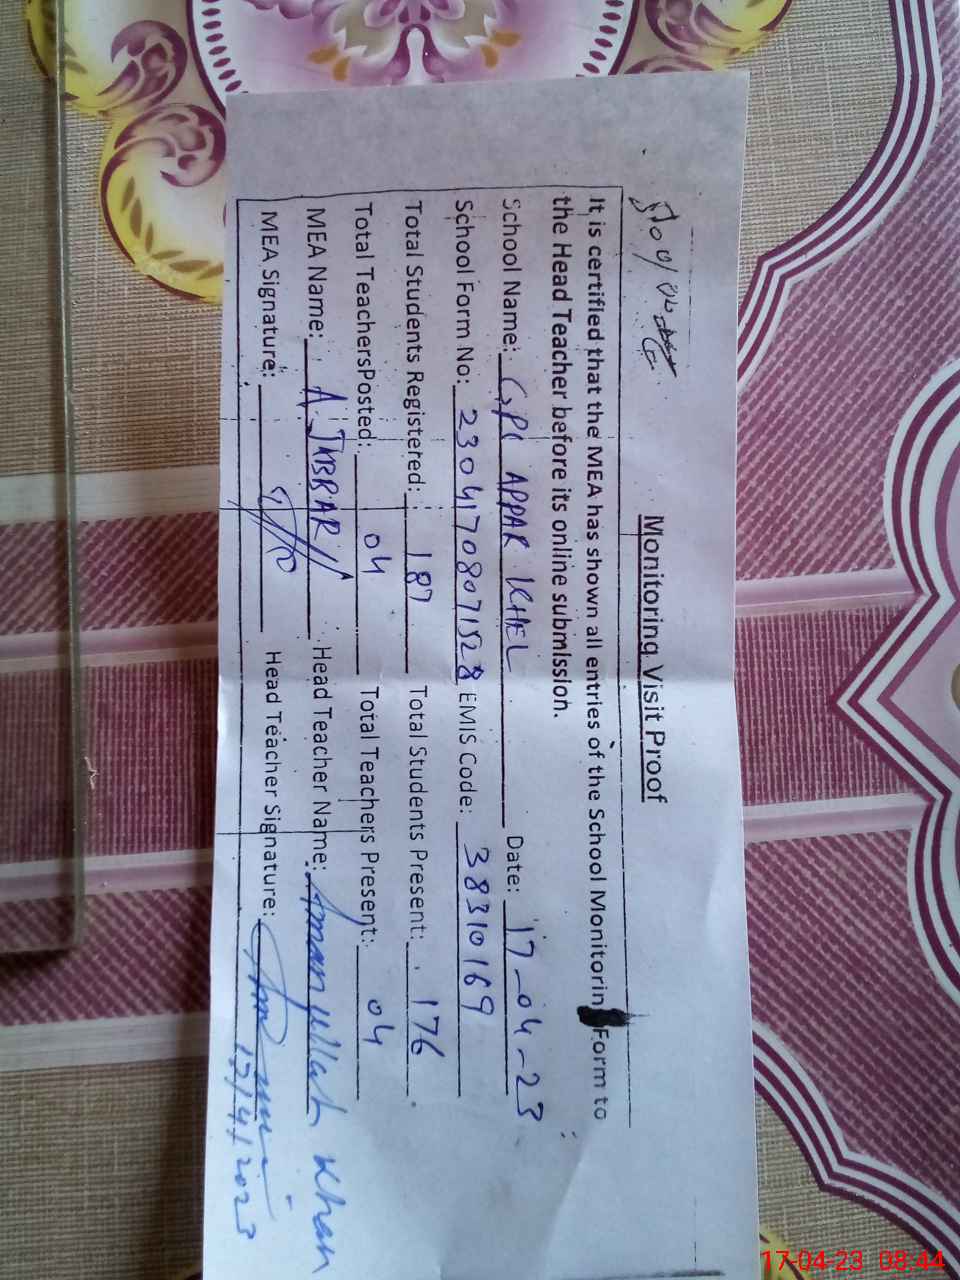 Monitoring Visit Proof
It is certified that the MEA has shown all entries of the School Monitorin Form to
the Head Teacher before its online submission.
School Name: GPS APPAR KHEL Date: 17-04-23
School Form No: 23041708071528 EMIS Code: 38310169
Total Students Registered: 187 Total Students Present: 176
Total TeachersPosted: 04 Total Teachers Present: 04
MEA Name: A. JABBAR Head Teacher Name: Aman Ullah Khan
MEA Signature: Head Teacher Signature:
17/4/2023
17-04-23 08:44